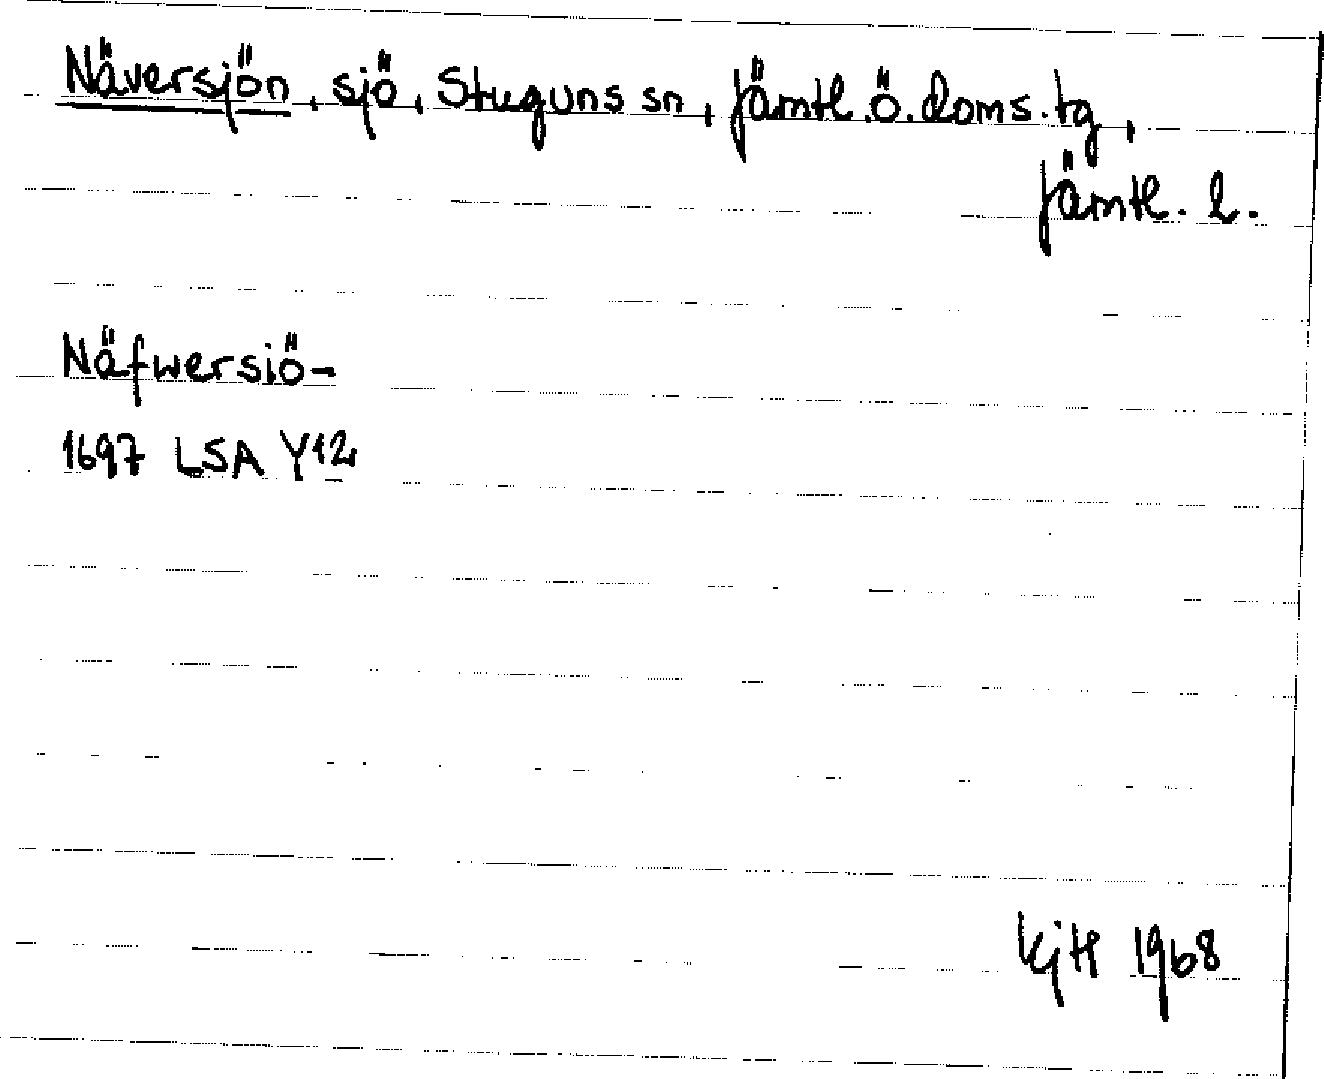 Näversjön, sjö, Stuguns sn, Jämtl.ö.doms.tg,
Jämtl. l.
Näfwersiö-
1697 LSA Y12
KjH 1968